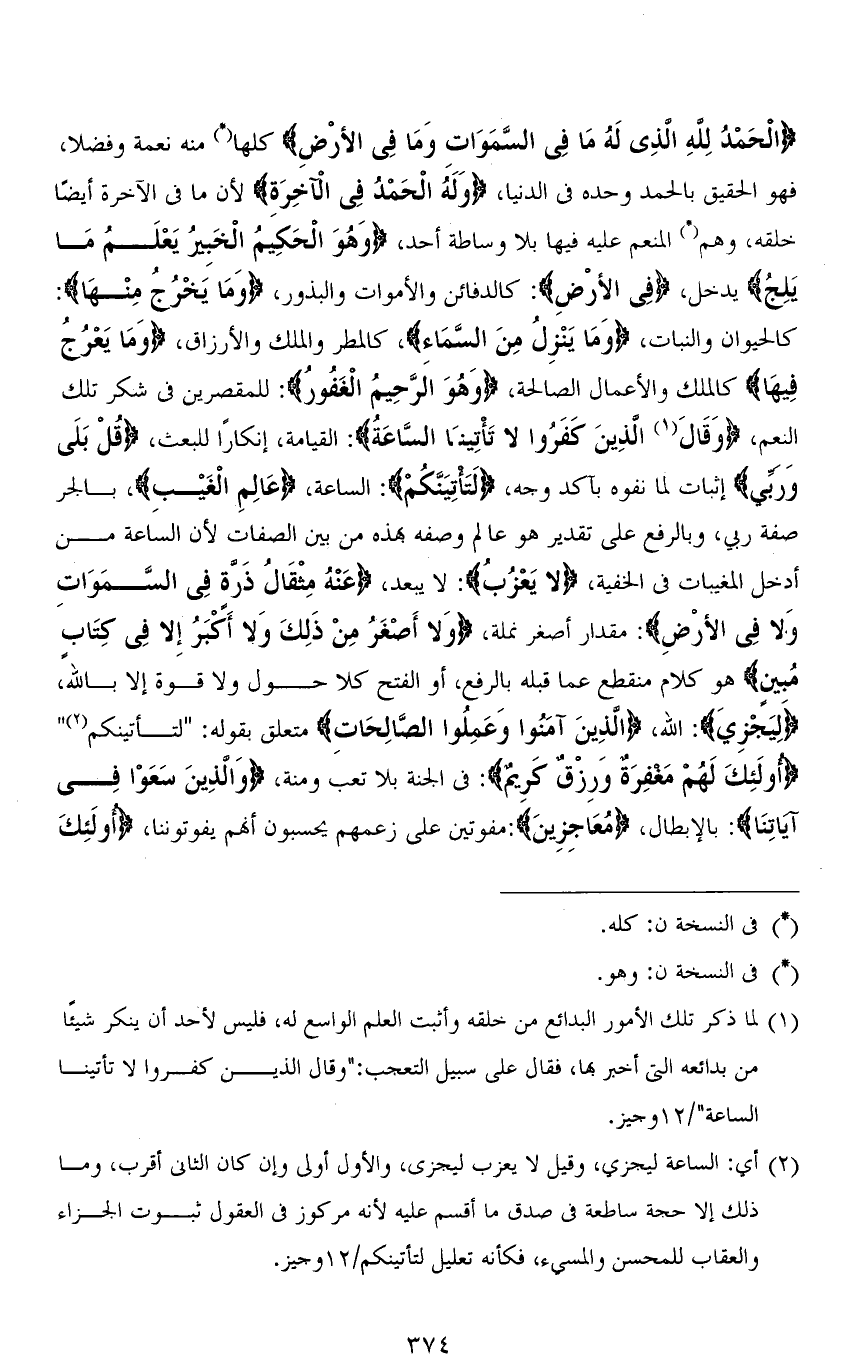 ﴿الْحَمْدُ لِلَّهِ الَّذِى لَهُ مَا فِى السَّمَوَاتِ وَمَا فِى الأرْضِ﴾ كلها(*) منه نعمة وفضلا،
فهو الحقيق بالحمد وحده فى الدنيا، ﴿وَلَهُ الْحَمْدُ فِى الْآخِرَةِ﴾ لأن ما فى الآخرة أيضًا
خلقه، وهم(*) المنعم عليه فيها بلا وساطة أحد، ﴿وَهُوَ الْحَكِيمُ الْخَبِيرُ يَعْلَـــمُ مَـــا
يَلِجُ﴾ يدخل، ﴿فِى الأرْضِ﴾: كالدفائن والأموات والبذور، ﴿وَمَا يَخْرُجُ مِنْـــهَا﴾:
كالحيوان والنبات، ﴿وَمَا يَنْزِلُ مِنَ السَّمَاءِ﴾، كالمطر والملك والأرزاق، ﴿وَمَا يَعْرُجُ
فِيهَا﴾ كالملك والأعمال الصالحة، ﴿وَهُوَ الرَّحِيمُ الْغَفُورُ﴾: للمقصرين فى شكر تلك
النعم، ﴿وَقَالَ(١) الَّذِينَ كَفَرُوا لا تَأْتِينَا السَّاعَةُ﴾: القيامة، إنكارًا للبعث، ﴿قُلْ بَلَى
وَرَبِّي﴾ إثبات لما نفوه بآكد وجه، ﴿لَتَأْتِيَنَّكُمْ﴾: الساعة، ﴿عَالِمِ الْغَيْـــبِ﴾، بـــالجر
صفة ربي، وبالرفع على تقدير هو عالم وصفه بهذه من بين الصفات لأن الساعة مـــن
أدخل المغيبات فى الخفية، ﴿لا يَعْزُبُ﴾: لا يبعد، ﴿عَنْهُ مِثْقَالُ ذَرَّةٍ فِى السَّـــمَوَاتِ
وَلا فِى الأرْضِ﴾: مقدار أصغر نملة، ﴿وَلا أَصْغَرُ مِنْ ذَلِكَ وَلا أَكْبَرُ إِلا فِى كِتَابٍ
مُبِينٍ﴾ هو كلام منقطع عما قبله بالرفع، أو الفتح كلا حـــول ولا قـــوة إلا بـــالله،
﴿لِيَجْزِيَ﴾: الله، ﴿الَّذِينَ آمَنُوا وَعَمِلُوا الصَّالِحَاتِ﴾ متعلق بقوله: "لتـــأتينكم(٢)"
﴿أُولَئِكَ لَهُمْ مَغْفِرَةٌ وَرِزْقٌ كَرِيمٌ﴾: فى الجنة بلا تعب ومنة، ﴿وَالَّذِينَ سَعَوْا فِـــى
آيَاتِنَا﴾: بالإبطال، ﴿مُعَاجِزِينَ﴾:مفوتين على زعمهم يحسبون أنهم يفوتوننا، ﴿أُولَئِكَ
(*) فى النسخة ن: كله.
(*) فى النسخة ن: وهو.
(١) لما ذكر تلك الأمور البدائع من خلقه وأثبت العلم الواسع له، فليس لأحد أن ينكر شيئًا
من بدائعه التى أخبر بها، فقال على سبيل التعجب:"وقال الذيـــن كفـــروا لا تأتينـــا
الساعة"/١٢وجيز.
(٢) أي: الساعة ليجزي، وقيل لا يعزب ليجزى، والأول أولى وإن كان الثانى أقرب، ومـــا
ذلك إلا حجة ساطعة فى صدق ما أقسم عليه لأنه مركوز فى العقول ثبـــوت الجـــزاء
والعقاب للمحسن والمسيء، فكأنه تعليل لتأتينكم/١٢وجيز.
٣٧٤